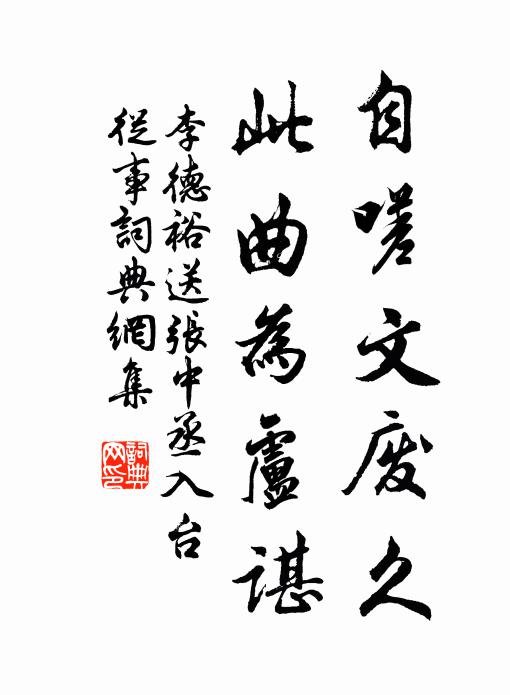 自嗟文废久
此曲為盧諶
李德裕送張中丞入台
從事詞典網集
詞典
网印